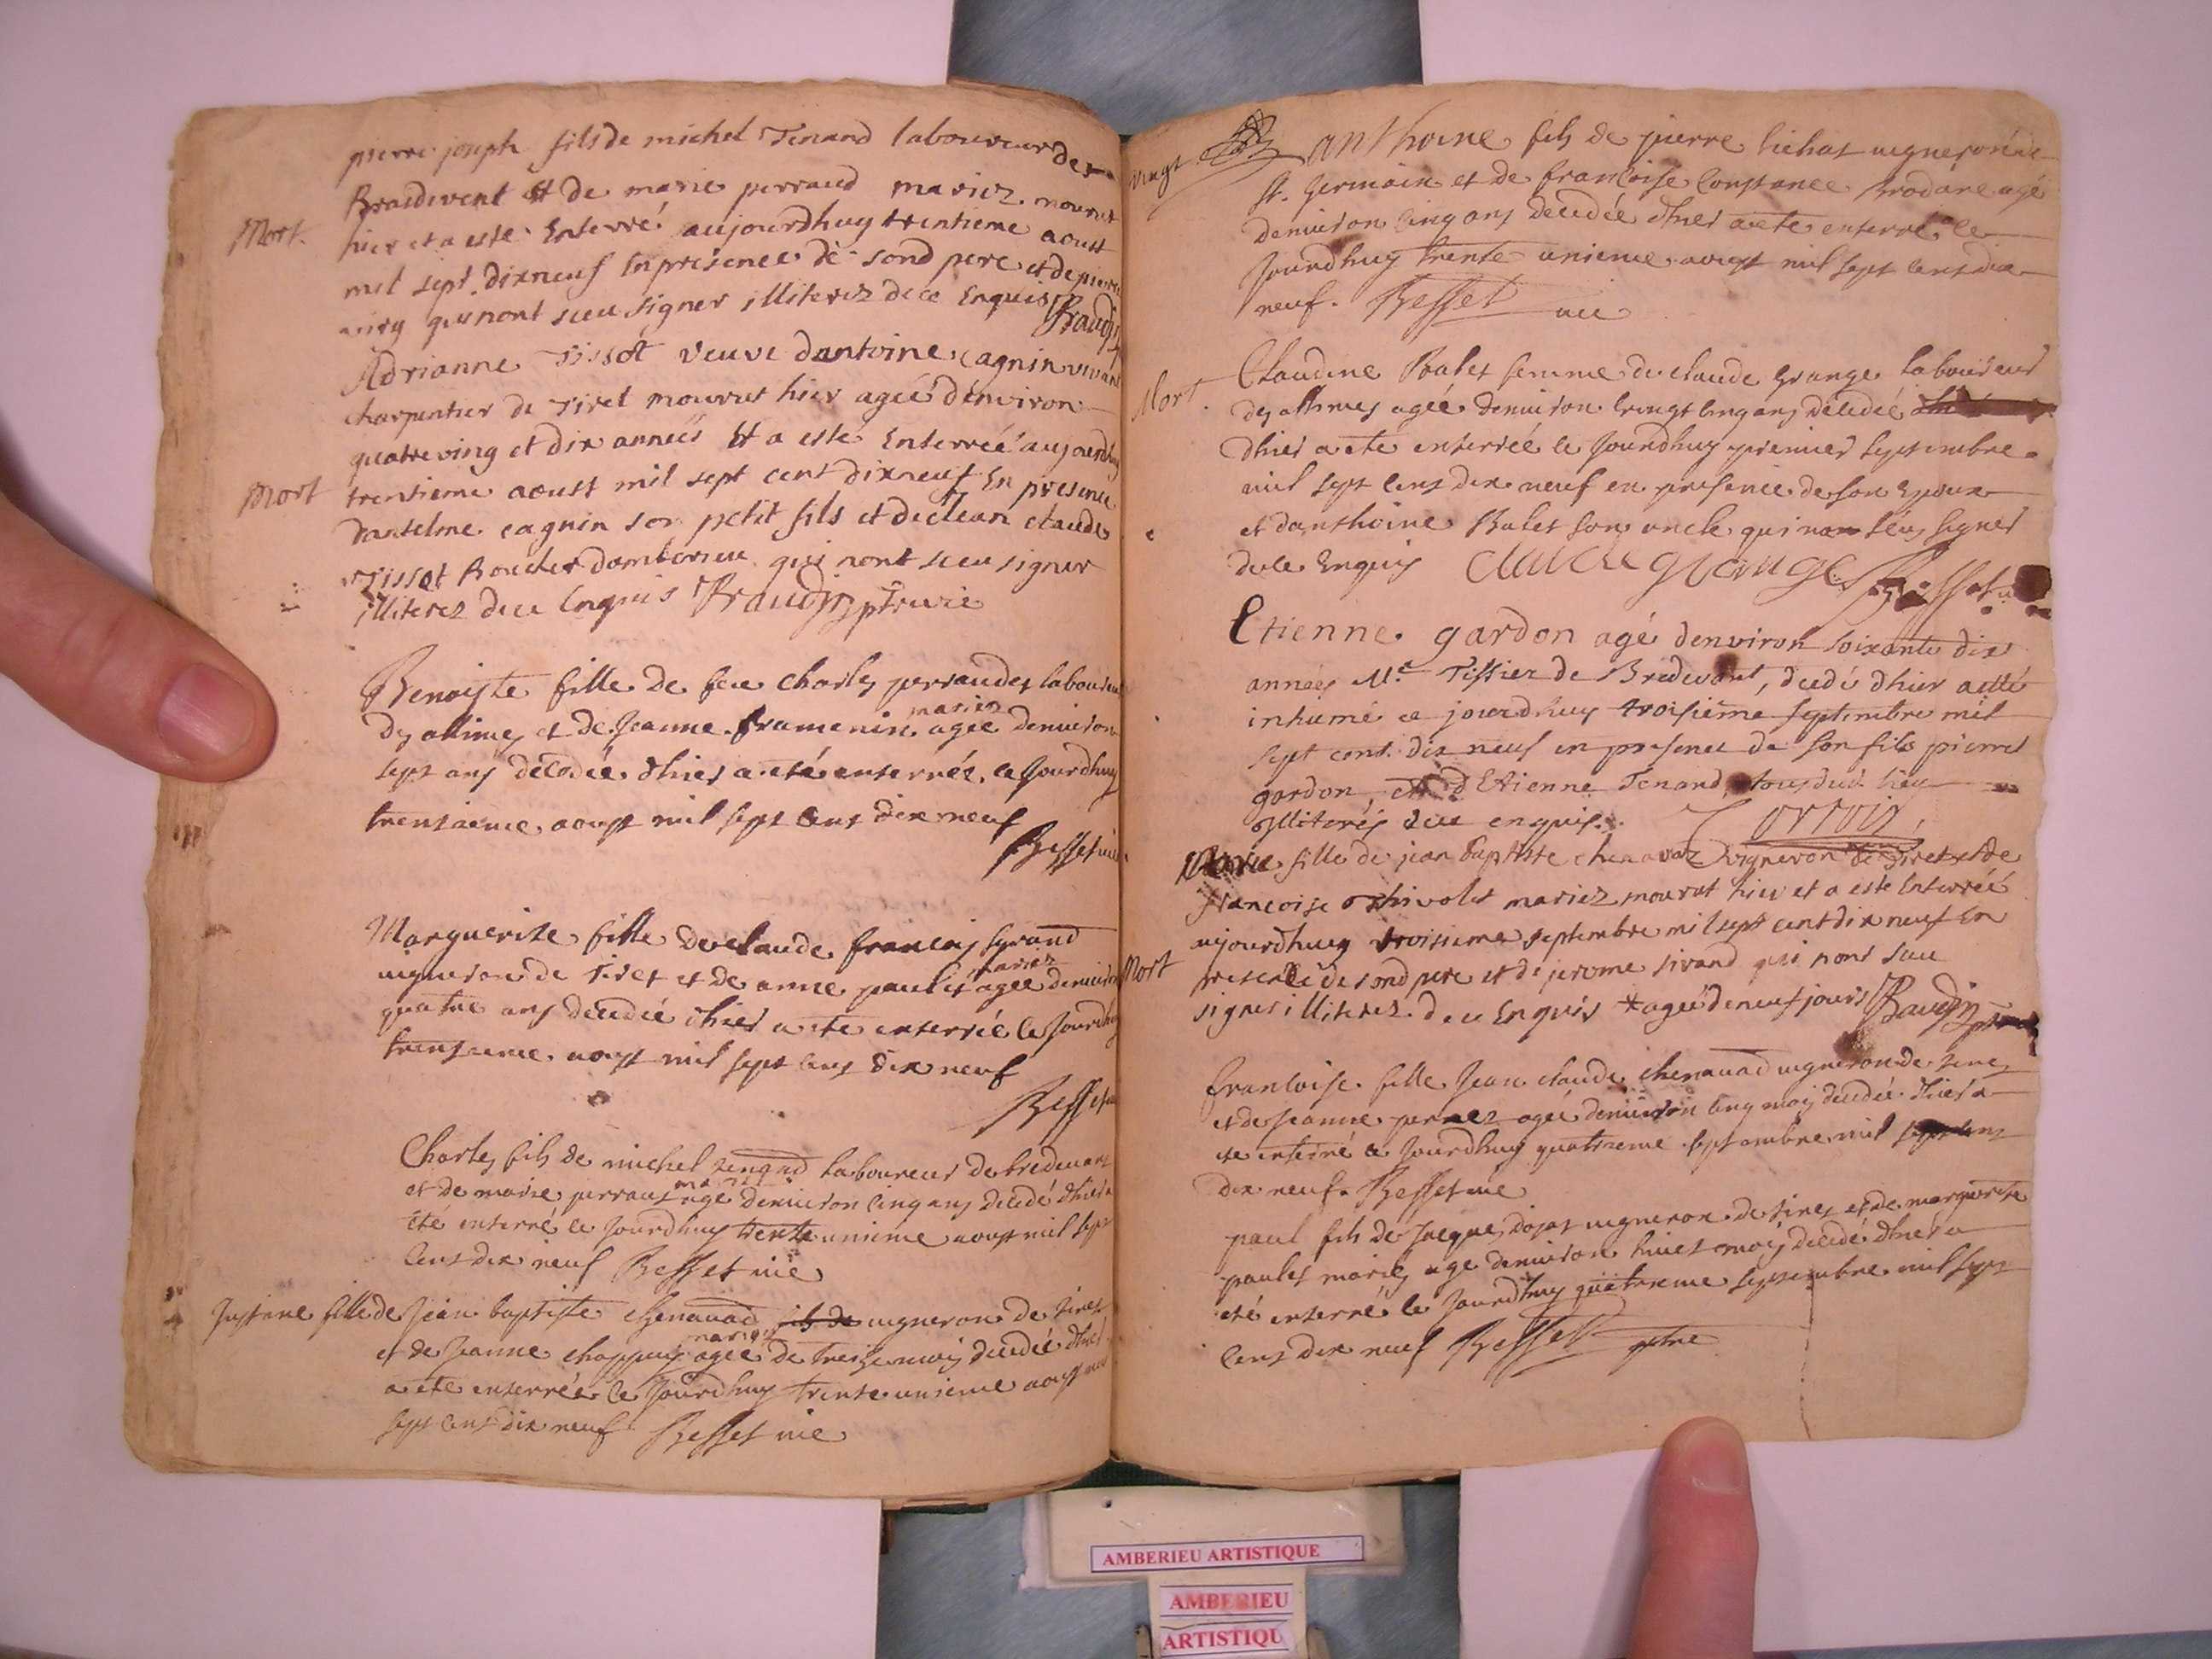 pierre joseph fils de michel Tenand laboureur de
Braidevent et de marie perraud mariez mourut
Mort. hier et a este Enterré aujourdhuy trentieme aoust
mil sept dixneuf En presence de sond pere et de pierre
qui nont sceu signer illiterez de ce Enquis Baudin
Adrianne Tissot veuve dantoine Cagnin vivant
charpentier de Tiret mourut hier agée d'environ
quatre ving et dix années Et a esté Enterrée aujourdhuy
Mort trentieme aoust mil sept cent dixneuf En presence
danselme cagnin son petit fils et de claude
Tissot Boucher damberieu qui nont sceu signer
illiterez de ce Enquis Baudin ptre vic
Benoiste fille de feu Charles perraudet laboureur
des allimes et de Jeanne framenin mariez agée denuiron
sept ans décédée dhier a eté enterrée, ce Jourdhuy
trentaieme aoust mil sept cens dix neuf
Besset vic
Marguerite fille de claude francois sirand
uigneron de Tiret et de anne paulet mariez agée denuiron
quatre ans decedée dhier a ete enterrée ce Jourdhuy
trentaieme aoust mil sept cens dix neuf
Besset
Charles fils de michel tenand laboureur de bredeuant
et de marie perraut mariez agé denuiron cinq ans decedé dhier a
été enterré ce Jourdhuy trente unieme aoust mil sept
cens dix neuf Besset vic
Justine fille de Jean baptiste chenauad fils de uigneron de tiret
et de Jeanne chappuy mariez agée de treize mois decedée dhier
a ete enterrée ce Jourdhuy trente unieme aoust mil
sept cens dix neuf Besset vic
vingt
anthoine fils de pierre lichat uigneron de
st. germain et de francoise Constance brodare agé
denuiron cinq ans decedée dhier a ete enterré ce
Jourdhuy trente unieme aoust mil sept cens dix
neuf. Besset vic
Claudine Bolet femme de claude grange laboureur
Mort. des allimes agée denuiron vingt cinq ans décédée
dhier a ete enterrée ce Jourdhuy premier septembre
mil sept cens dix neuf en presence de son epoux
et danthoine Bolet son oncle qui non sceu signer
de ce Enquis Claude grange Besset
Etienne gardon agé denviron soixante dix
années Me Tissier de Bredevant, decedé dhier a etté
inhumé ce jourdhuy troisiéme septembre mil
sept cent dix neuf en presence de son fils pierre
gardon, et d'Etienne Tenand, tous dud. lieu
illiterés de ce enquis. Tortoin
Marie fille de jean Baptiste chenavaz vigneron de Tiret et de
francoise Thivolet mariez mourut hier et a este Enterrée
aujourdhuy troisieme septembre mil sept cent dix neuf En
Mort presence de sond pere et de jerome sirand qui nont sceu
signer illiterez de ce Enquis *agée de neuf jours Baudin ptre
francoise fille Jean claude chenauad uigneron de tiret
et de Jeanne pernez agée denuiron cinq mois decedée dhier a
ete enterré ce Jourdhuy quatrieme septembre mil sept cens
dix neuf. Besset vic
paul fils de Jacques dojat uigneron de tiret et de marguerite
paulet mariez agé denuiron huict mois decedé dhier a
eté enterré ce Jourdhuy quatrieme septembre mil sept
cens dix neuf Besset ptre
AMBERIEU ARTISTIQUE
AMBERIEU
ARTISTIQU